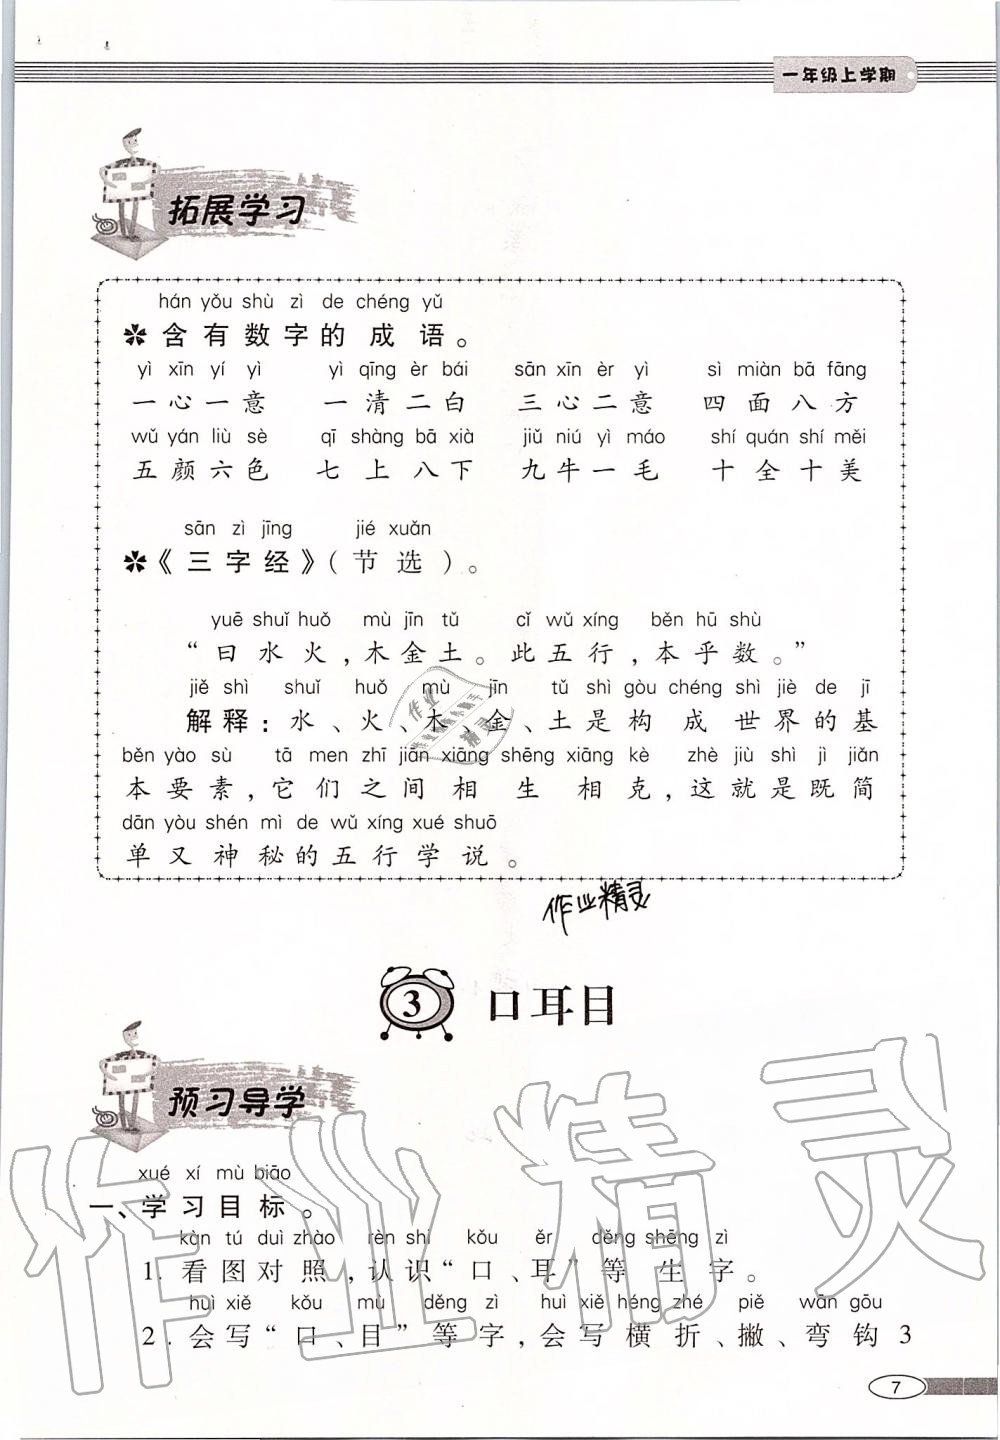 一年级上学期
拓展学习
hán yǒu shù zì de chéng yǔ
含有数字的成语。
yì xīn yí yì yì qīng èr bái sān xīn èr yì sì miàn bā fāng
一心一意 一清二白 三心二意 四面八方
wǔ yán liù sè qī shàng bā xià jiǔ niú yì máo shí quán shí měi
五颜六色 七上八下 九牛一毛 十全十美
sān zì jīng jié xuǎn
《三字经》(节选)。
yuē shuǐ huǒ mù jīn tǔ cǐ wǔ xíng běn hū shù
“曰水火,木金土。此五行,本乎数。”
jiě shì shuǐ huǒ mù jīn tǔ shì gòu chéng shì jiè de jī
解释:水、火、木、金、土是构成世界的基
běn yào sù tā men zhī jiān xiāng shēng xiāng kè zhè jiù shì jì jiǎn
本要素,它们之间相生相克,这就是既简
dān yòu shén mì de wǔ xíng xué shuō
单又神秘的五行学说。
作业精灵
3 口耳目
预习导学
xué xí mù biāo
一、学习目标。
kàn tú duì zhào rèn shi kǒu ěr děng shēng zì
1. 看图对照,认识“口、耳”等生字。
huì xiě kǒu mù děng zì huì xiě héng zhé piě wān gōu
2. 会写“口、目”等字,会写横折、撇、弯钩3
7
作业精灵